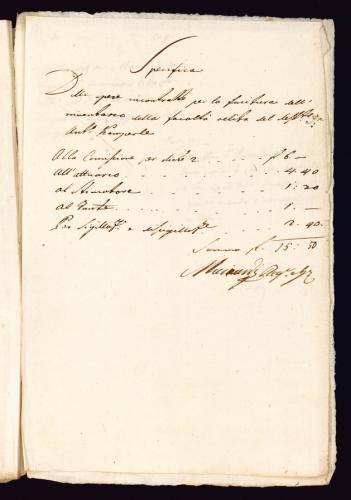 Specifica
Delle spese incontrate per la fattura dell'
inventario della facoltà relita del
Ant.o
Alla Comissione per diete 2 . . . f 6 —
All'attuario . . . . . . 4. 40
al Stimatore . . . . . . 1: 20
al Fante . . . . . . 1. —
Per Sigill e disigill . . . 2. 40.
Summa f. 15: 50